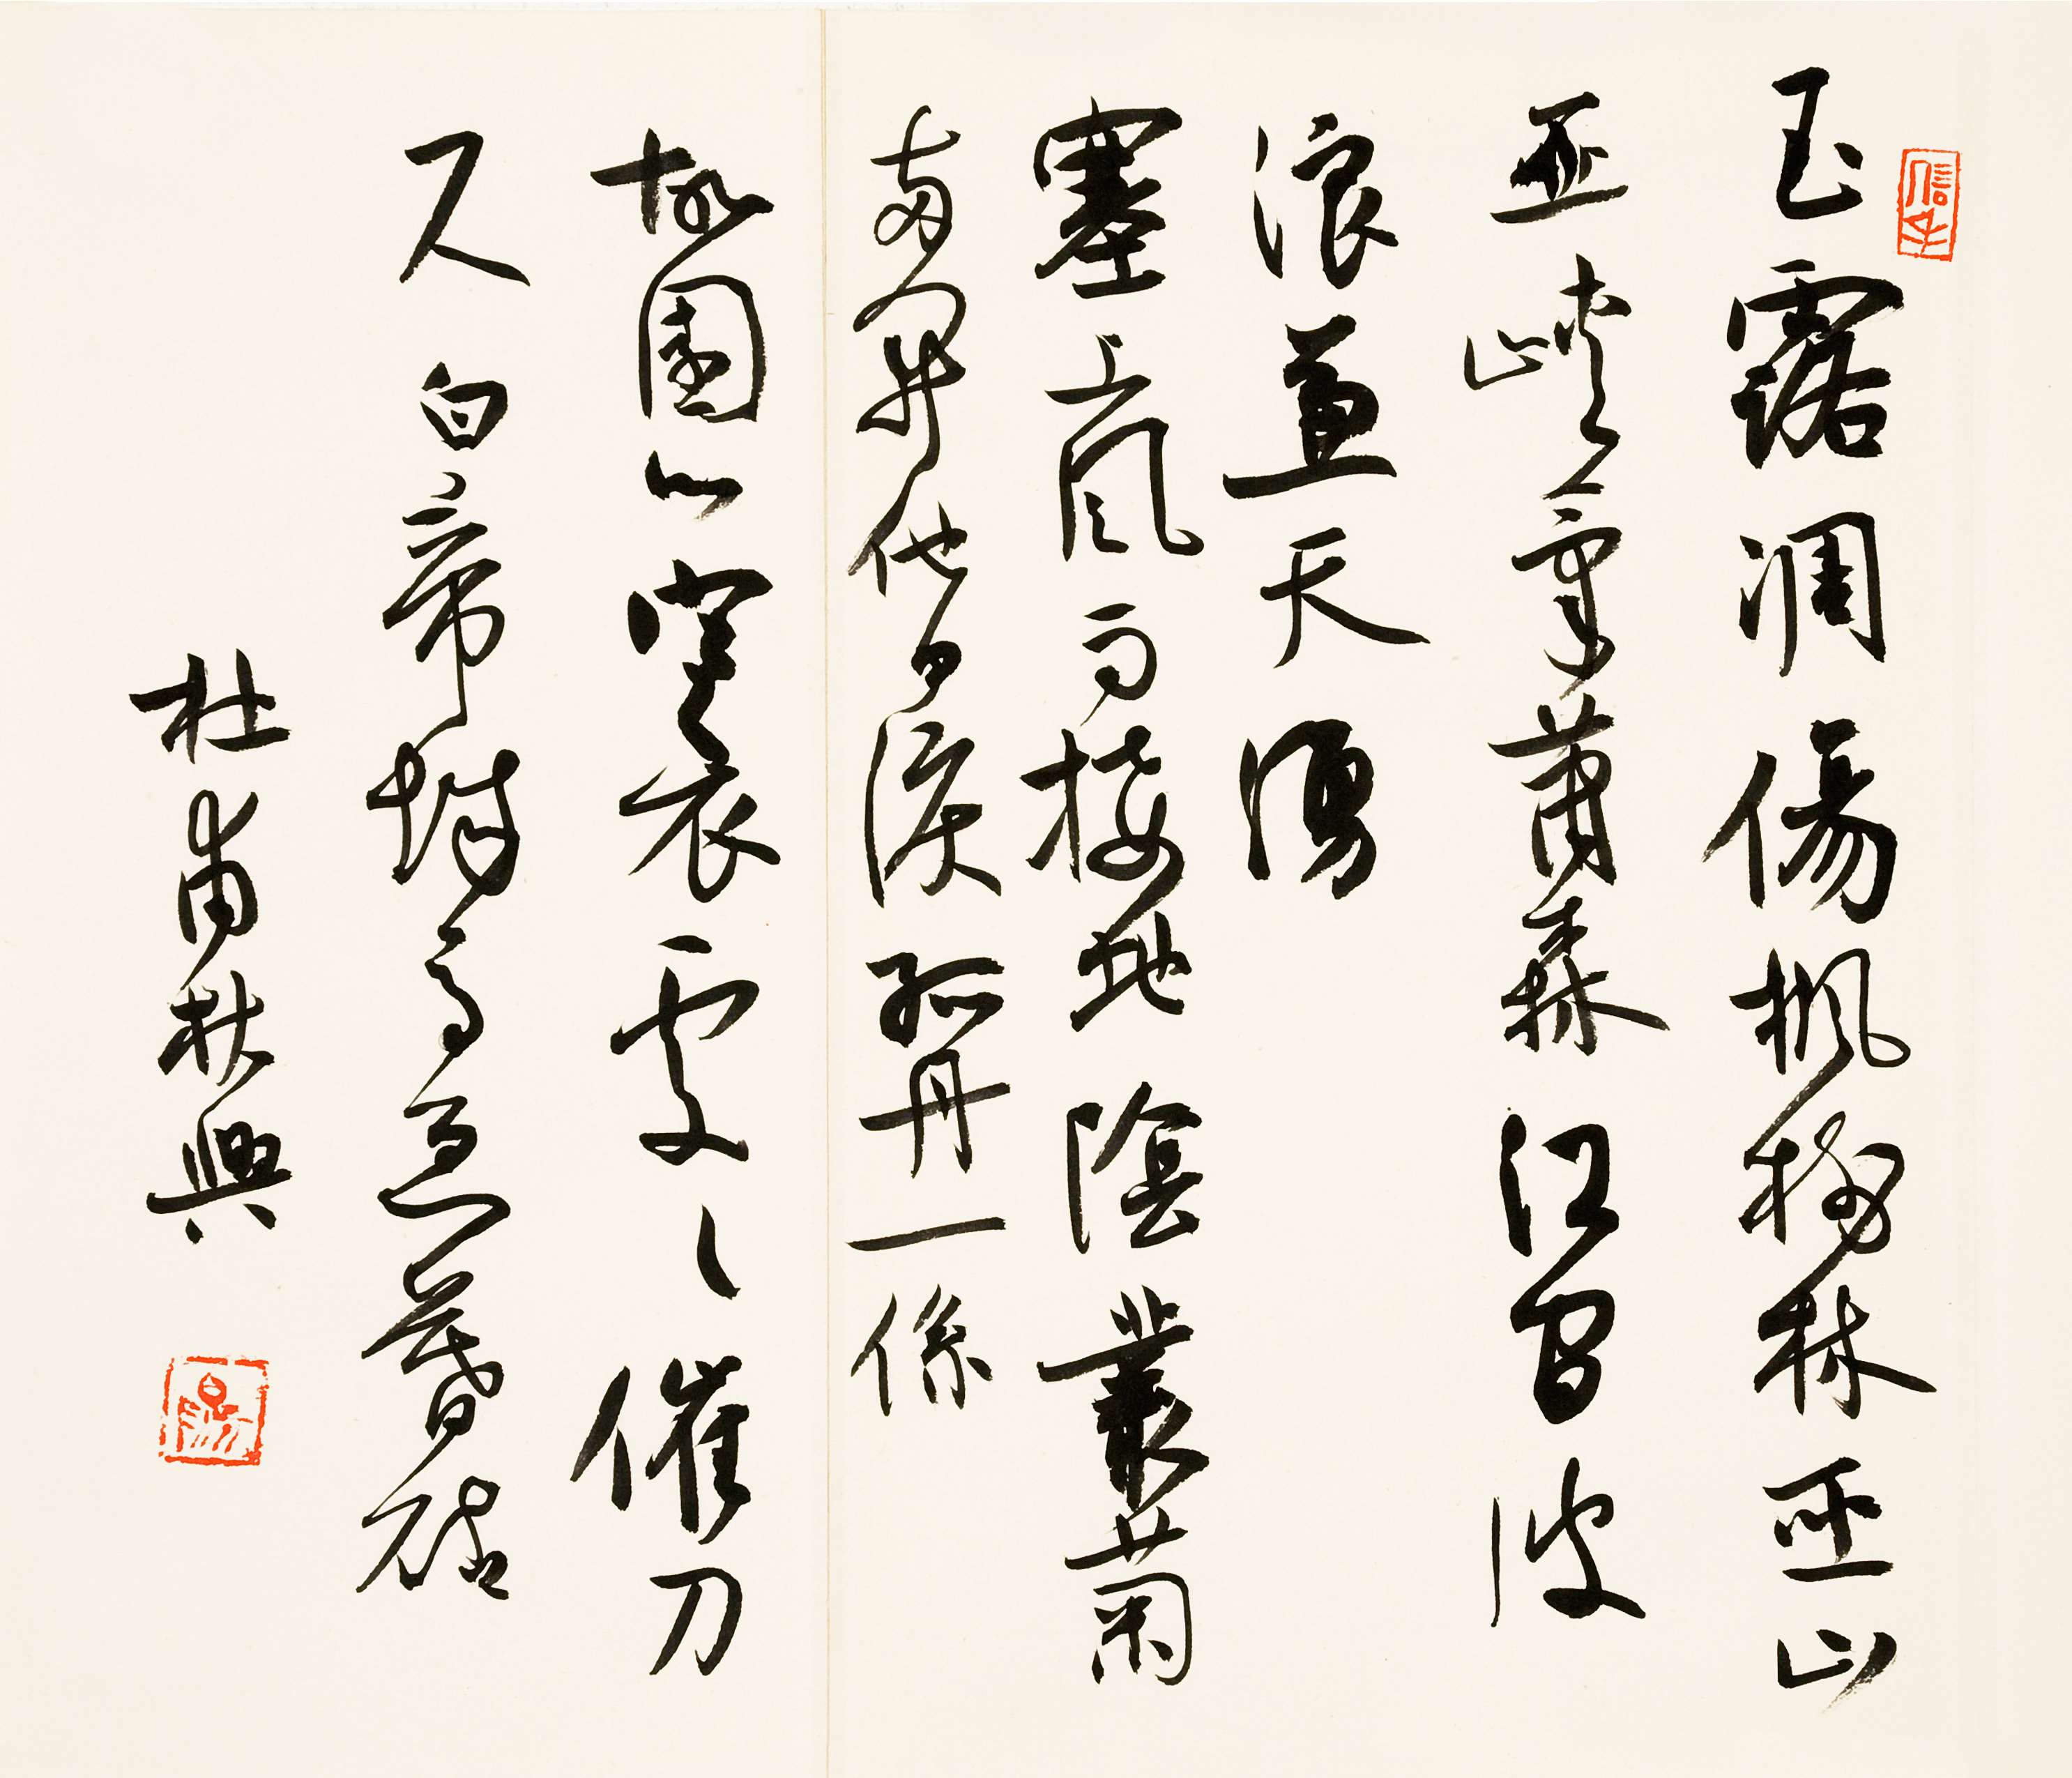 玉露凋傷楓樹林巫山
巫峽氣蕭森江間波
浪兼天湧
塞上風雲接地陰叢菊
兩開他日淚孤舟一係
故園心寒衣處々催刀
尺白帝城高急暮砧
杜甫秋興